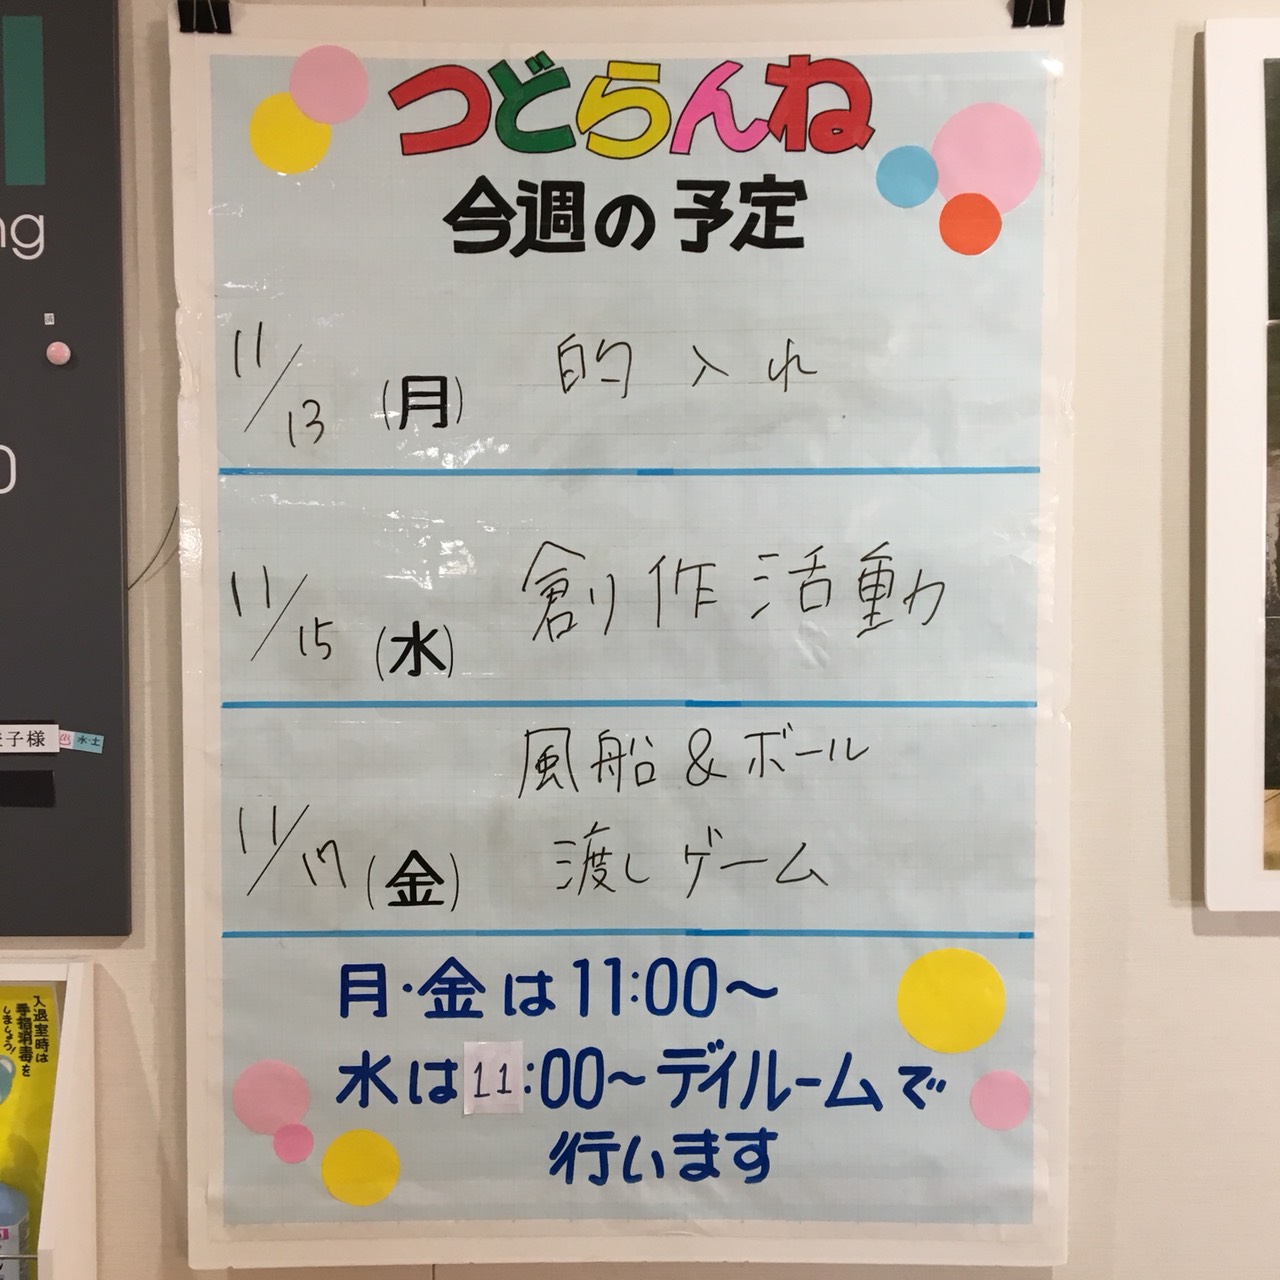 つどらんね
今週の予定
11/13 (月) 的入れ
11/15 (水) 創作活動
11/17 (金) 風船&ボール
渡しゲーム
月・金は11:00～
水は11:00～デイルームで
行います
ng
0
子様
水・土
入退室時は
手指消毒を
しましょう!